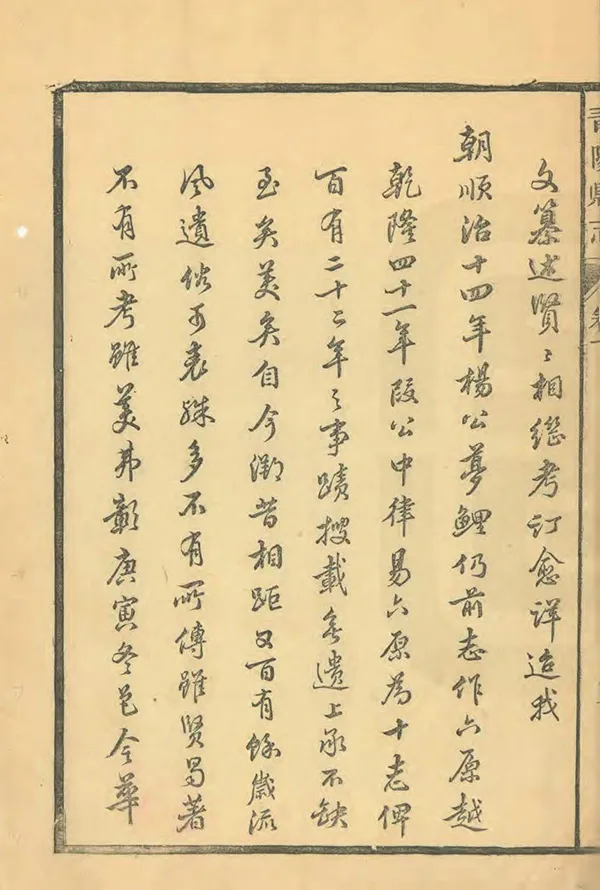 青陽縣志 卷一
文纂述賢〻相繼考訂愈詳迨我
朝順治十四年楊公夢鯉仍前志作六原越
乾隆四十一年段公中律易六原為十志俾
百有二十二年之事蹟搜載無遺上承不缺
至矣美矣自今溯昔相距又百有餘歲流
風遺俗可表殊多不有所傳雖賢曷著
不有所考雖美弗彰庚寅冬邑令華